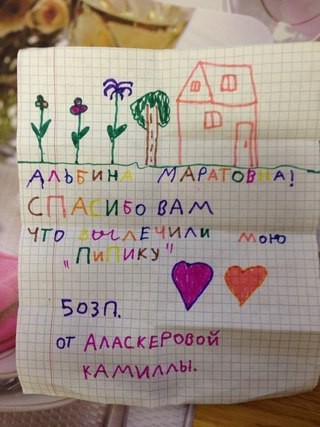 АЛЬБИНА МАРАТОВНА!
СПАСИБО ВАМ
ЧТО ВЫЛЕЧИЛИ МОЮ
"ПИПИКУ"
5ОЗП.
ОТ АЛАСКЕРОВОЙ
КАМИЛЛЫ.